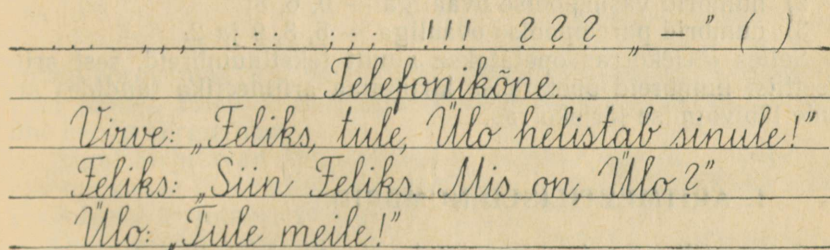 ... ,,, ::: ;;; !!! ??? „ – ” ( )
Telefonikõne.
Virve: „Feliks, tule, Ülo helistab sinule!”
Feliks: „Siin Feliks. Mis on, Ülo?”
Ülo: „Tule meile!”